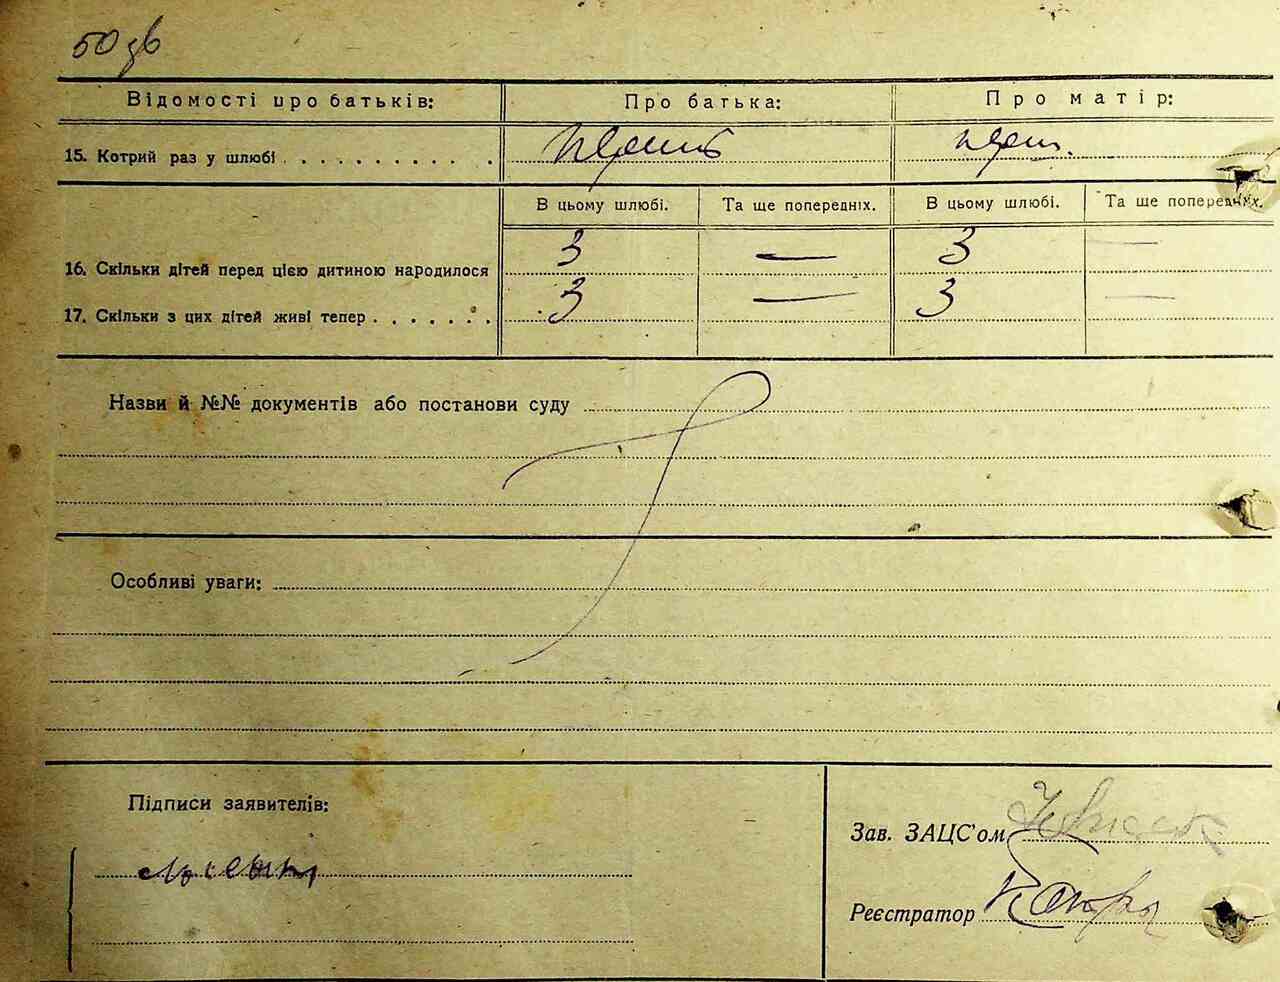 50 зв
Відомості про батьків: Про батька: Про матір:
15. Котрий раз у шлюбі . . . . . . . . . . . перший перш.
В цьому шлюбі. Та ще попередніх. В цьому шлюбі. Та ще попередніх.
16. Скільки дітей перед цією дитиною народилося 3 — 3 —
17. Скільки з цих дітей живі тепер . . . . . . . 3 — 3 —
Назви й №№ документів або постанови суду
Особливі уваги:
Підписи заявителів:
Зав. ЗАЦС'ом
Реєстратор